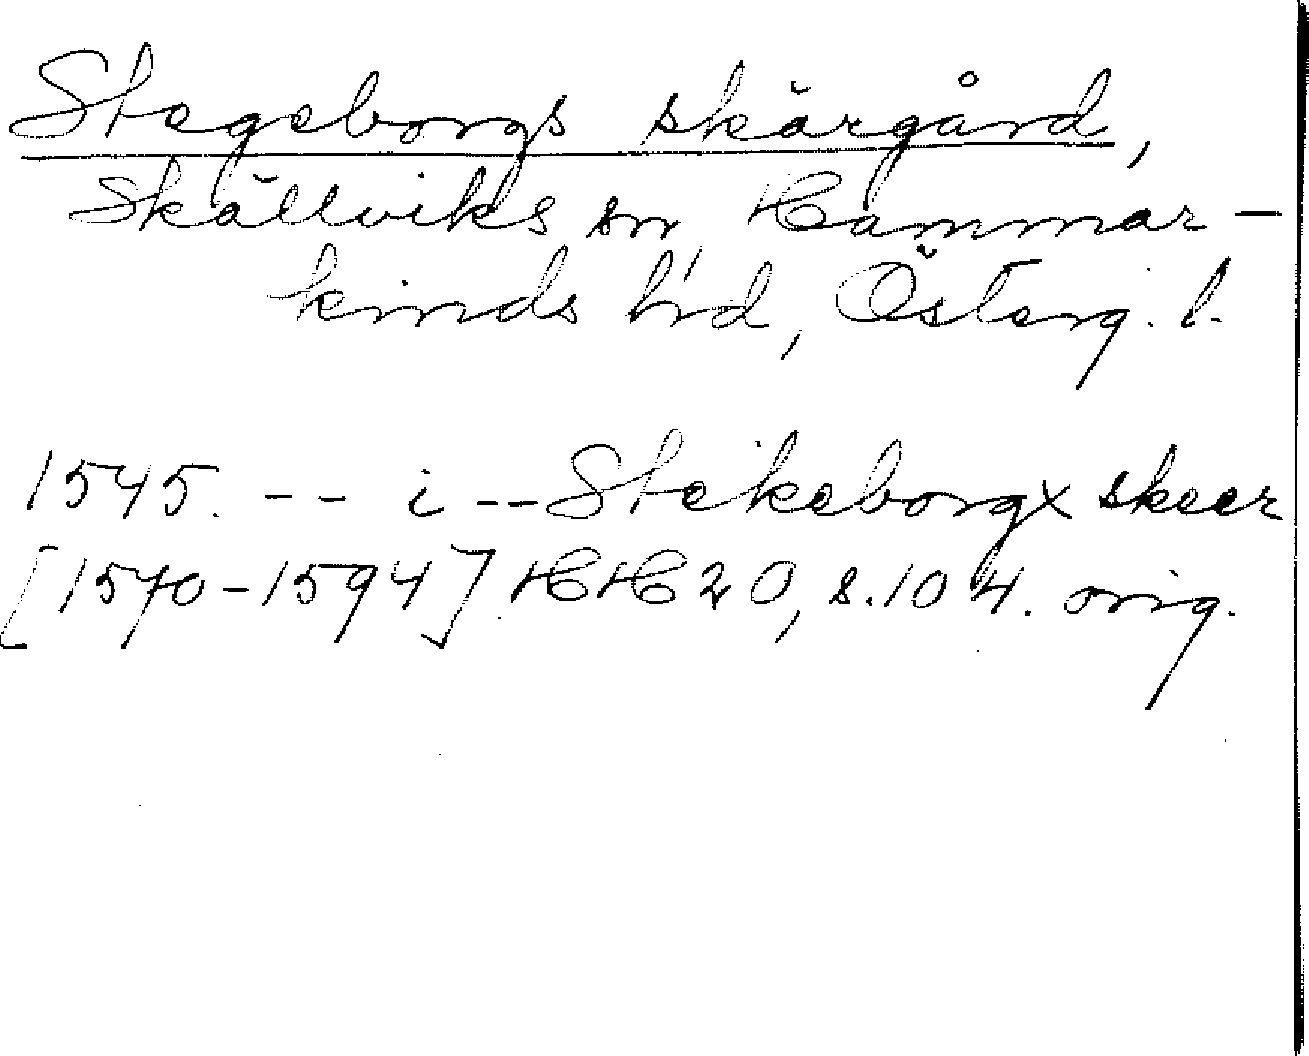 Stegeborgs skärgård,
Skällviks sn, Hammar-
kinds hd, Österg. l.
1545. -- i -- Stekeborgx skeer
[1570-1594]. HH 20, s. 104. orig.